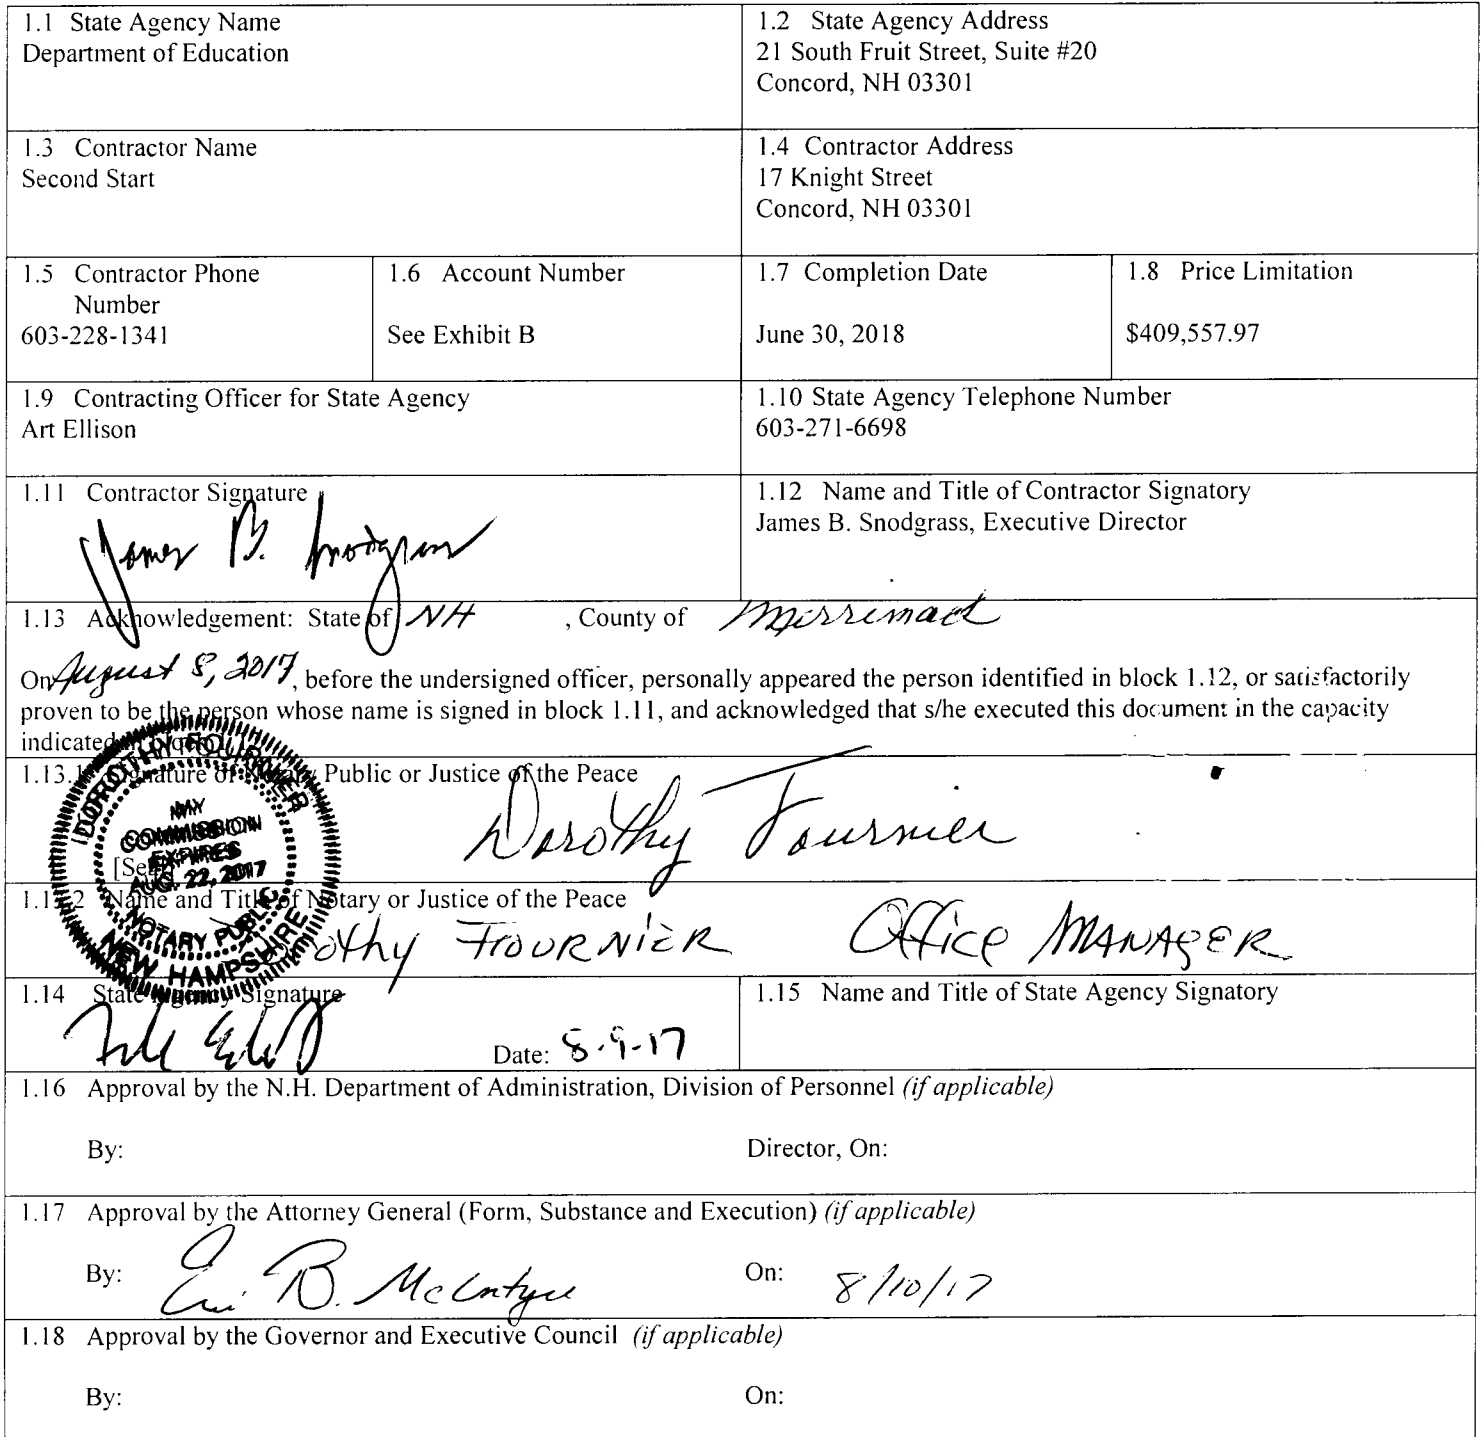 1.1 State Agency Name
Department of Education
1.2 State Agency Address
21 South Fruit Street, Suite #20
Concord, NH 03301
1.3 Contractor Name
Second Start
1.4 Contractor Address
17 Knight Street
Concord, NH 03301
1.5 Contractor Phone
Number
603-228-1341
1.6 Account Number
See Exhibit B
1.7 Completion Date
June 30, 2018
1.8 Price Limitation
$409,557.97
1.9 Contracting Officer for State Agency
Art Ellison
1.10 State Agency Telephone Number
603-271-6698
1.11 Contractor Signature
James B. Snodgrass
1.12 Name and Title of Contractor Signatory
James B. Snodgrass, Executive Director
1.13 Acknowledgement: State of NH , County of Merrimack
On August 8, 2017, before the undersigned officer, personally appeared the person identified in block 1.12, or satisfactorily
proven to be the person whose name is signed in block 1.11, and acknowledged that s/he executed this document in the capacity
indicated in block
1.13.1 Signature of Notary Public or Justice of the Peace
Dorothy Fournier
[Seal]
DOROTHY FOURNIER
MY
COMMISSION
EXPIRES
AUG. 22, 2017
NOTARY PUBLIC
NEW HAMPSHIRE
1.13.2 Name and Title of Notary or Justice of the Peace
Dorothy FOURNIER Office MANAGER
1.14 State Agency Signature
Date: 8-9-17
1.15 Name and Title of State Agency Signatory
1.16 Approval by the N.H. Department of Administration, Division of Personnel (if applicable)
By: Director, On:
1.17 Approval by the Attorney General (Form, Substance and Execution) (if applicable)
By: B. McIntyre On: 8/10/17
1.18 Approval by the Governor and Executive Council (if applicable)
By: On: